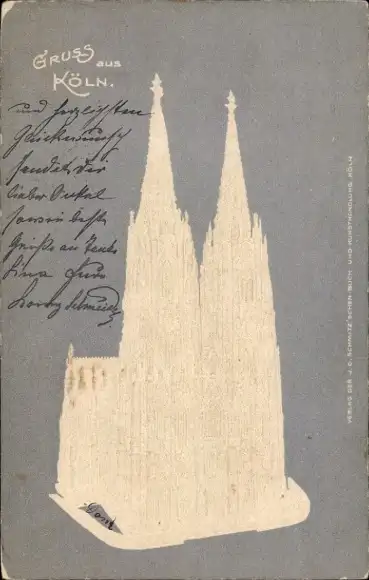 GRUSS aus
KÖLN.
und herzlichsten
Glückwunsch
sendet Dir
lieber Onkel
sowie beste
Grüße an Tante
Lina
Dom
VERLAG DER J. G. SCHMITZ'SCHEN BUCH- UND KUNSTHANDLUNG KÖLN